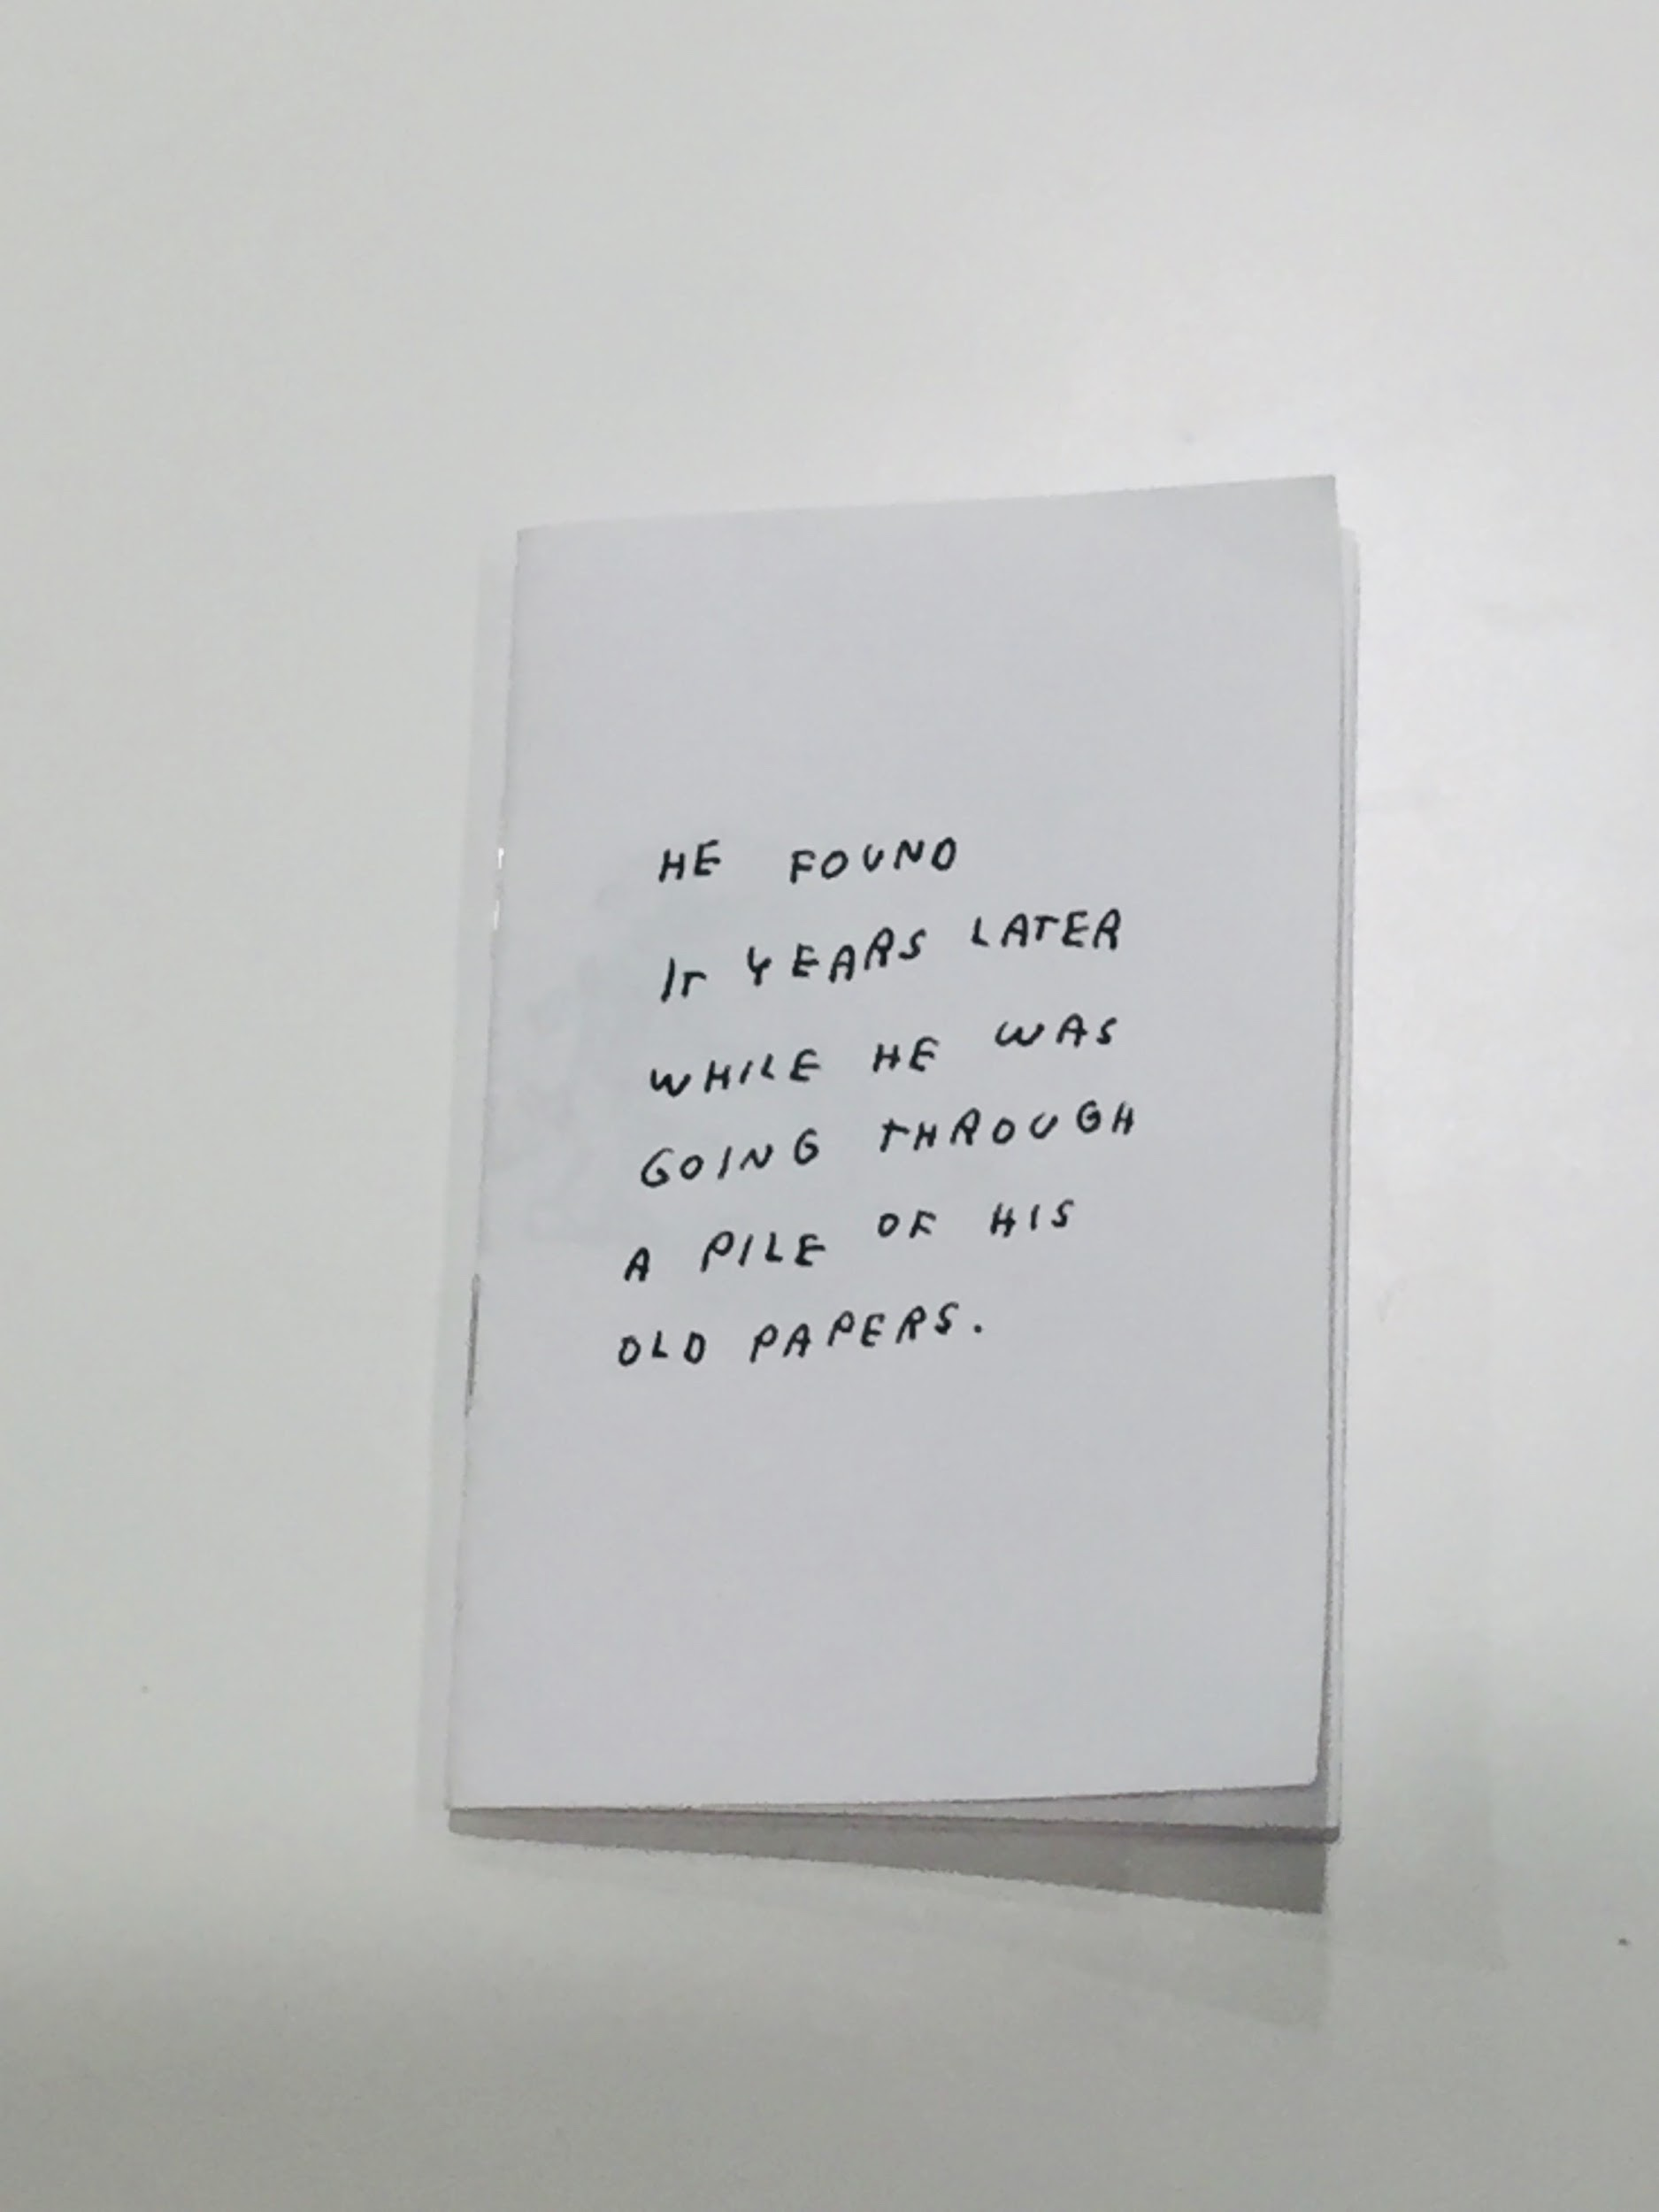 HE FOUND
IT YEARS LATER
WHILE HE WAS
GOING THROUGH
A PILE OF HIS
OLD PAPERS.